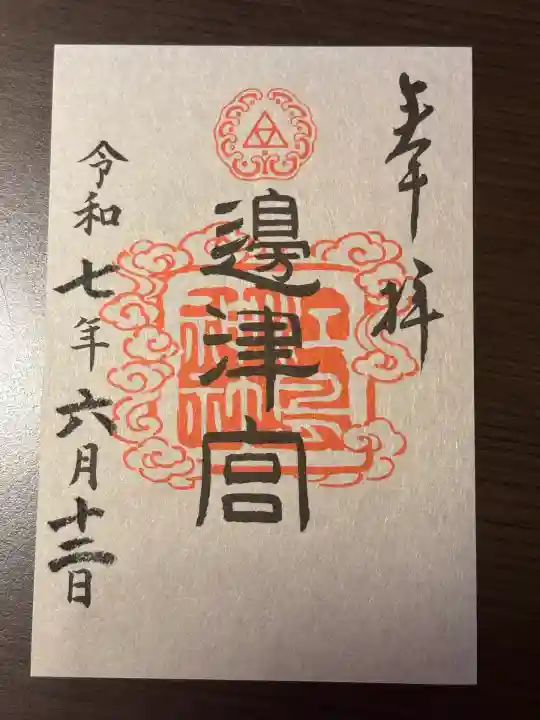 奉拝
邊津宮
令和七年六月十二日